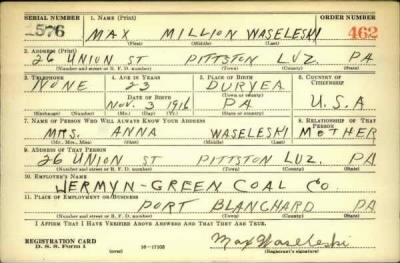 SERIAL NUMBER 1. NAME (Print) ORDER NUMBER
576 MAX MILLION WASELESKI 462
(First) (Middle) (Last)
2. ADDRESS (Print)
26 UNION ST PITTSTON LUZ. PA
(Number and street or R. F. D. number) (Town) (County) (State)
3. TELEPHONE 4. AGE IN YEARS 5. PLACE OF BIRTH 6. COUNTRY OF CITIZENSHIP
NONE 23 DURYEA
DATE OF BIRTH (Town or county)
Nov. 3 1916 PA U.S.A
(Exchange) (Number) (Mo.) (Day) (Yr.) (State or country)
7. NAME OF PERSON WHO WILL ALWAYS KNOW YOUR ADDRESS 8. RELATIONSHIP OF THAT PERSON
MRS. ANNA WASELESKI MOTHER
(Mr., Mrs., Miss) (First) (Middle) (Last)
9. ADDRESS OF THAT PERSON
26 UNION ST PITTSTON LUZ. PA
(Number and street or R. F. D. number) (Town) (County) (State)
10. EMPLOYER'S NAME
JERMYN-GREEN COAL CO.
11. PLACE OF EMPLOYMENT OR BUSINESS
PORT BLANCHARD PA
(Number and street or R. F. D. number) (Town) (County) (State)
I AFFIRM THAT I HAVE VERIFIED ABOVE ANSWERS AND THAT THEY ARE TRUE.
REGISTRATION CARD
D. S. S. Form 1 (over) 16-17105 Max Waseleski
(Registrant's signature)